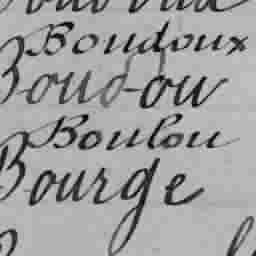 Boudoux
Boud-ou
Boulou
Bourge